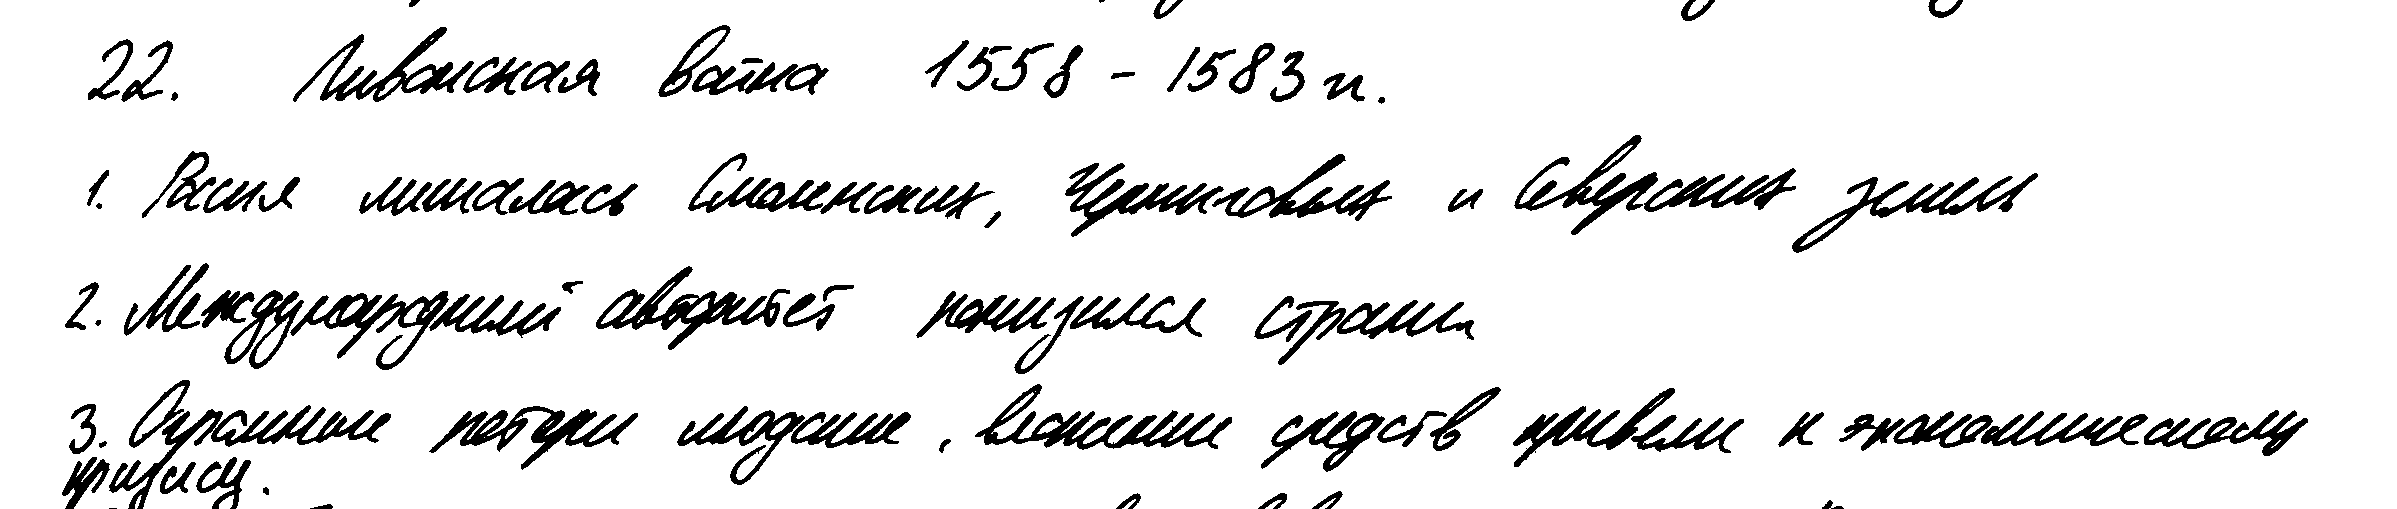 22. Ливонская война 1558 - 1583 гг.
1. Россия лишалась Смоленских, Черниговых и Северских земель
2. Международный авторитет понизился страны.
3. Огромные потери людские, вложение средств привели к экономическому
кризису.